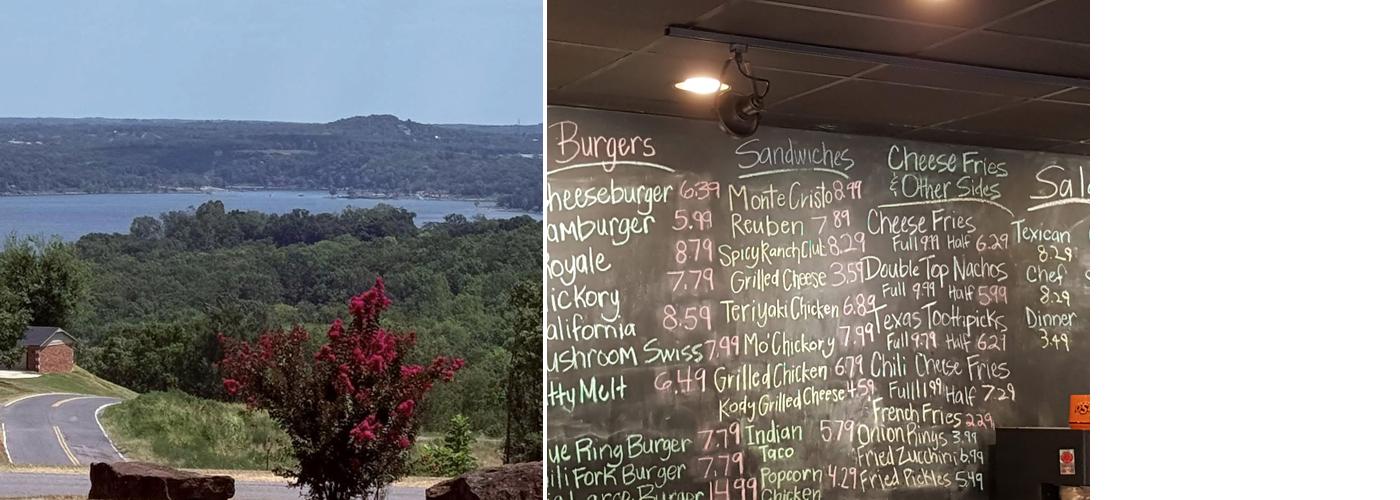 Burgers
heeseburger 6.39
amburger 5.99
oyale 8.79
ickory 7.79
alifornia 8.59
ushroom Swiss 7.99
tty Melt 6.49
ue Ring Burger 7.79
ili Fork Burger 7.79
Large Burger 14.99
Sandwiches
Monte Cristo 8.99
Reuben 7.89
Spicy Ranch Club 8.29
Grilled Cheese 3.59
Teriyaki Chicken 6.89
Mo'Chickory 7.99
Grilled Chicken 6.79
Kody Grilled Cheese 4.59
Indian 5.79
Taco
Popcorn 4.29
Chicken
Cheese Fries
& Other Sides
Cheese Fries
Full 9.99 Half 6.29
Double Top Nachos
Full 9.99 Half 5.99
Texas Toothpicks
Full 9.79 Half 6.29
Chili Cheese Fries
Full 11.99 Half 7.29
French Fries 2.29
Onion Rings 3.99
Fried Zucchini 6.99
Fried Pickles 5.49
Sal
Texican
8.29
Chef
8.29
Dinner
3.49